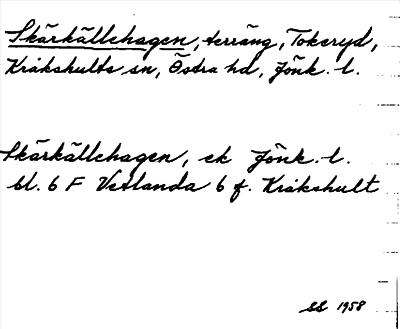 Skärkällehagen, terräng, Tokeryd,
Kråkshults sn, Östra hd, Jönk. l.
Skärkällehagen, ek Jönk. l.
bl. 6 F Vetlanda 6 f. Kråkshult
SS 1958